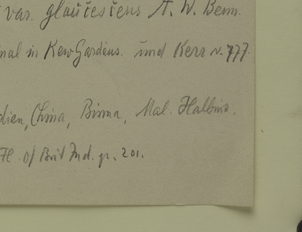 var. glaucescens A. W. Benn.
nal in Kew Gardens. und Kerr n. 777
dien, China, Birma, Mal. Halbins.
Fl. of Brit Ind. p. 201.